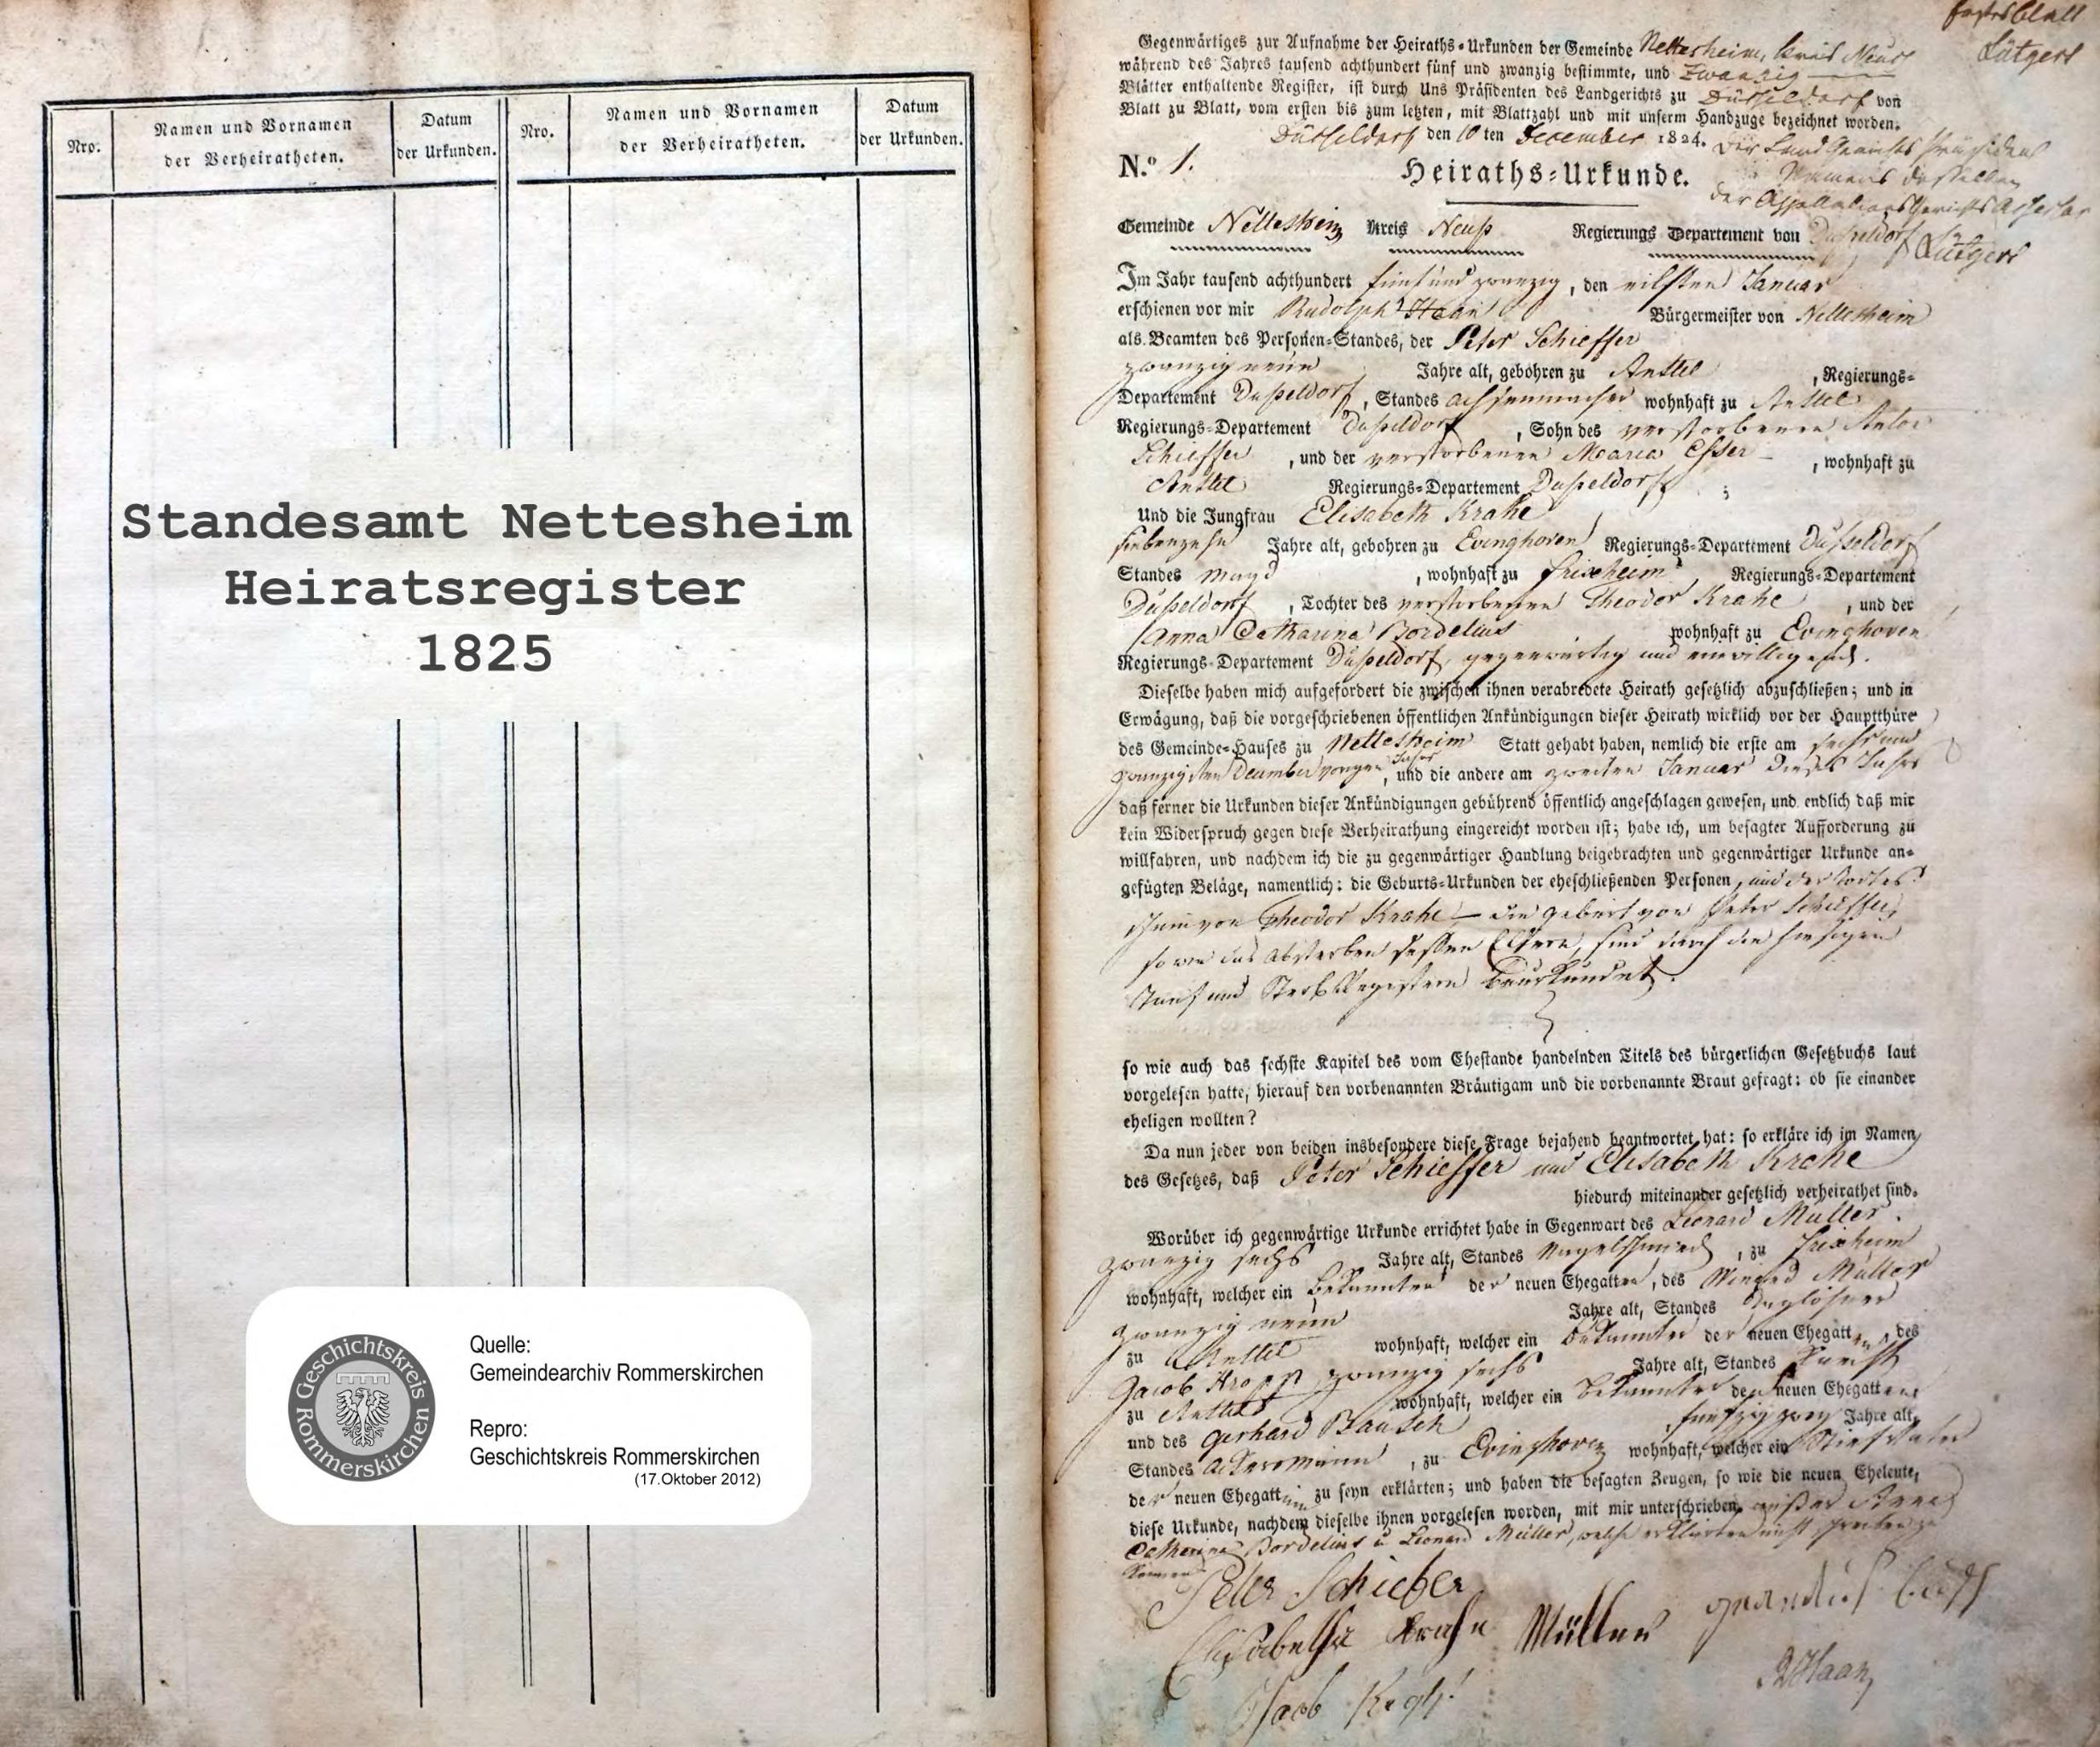 Nro:
Namen und Vornamen
der Verheiratheten.
Datum
der Urkunden.
Nro.
Namen und Vornamen
der Verheiratheten.
Datum
der Urkunden.
Standesamt Nettesheim
Heiratsregister
1825
Geschichtskreis
Rommerskirchen
Quelle:
Gemeindearchiv Rommerskirchen
Repro:
Geschichtskreis Rommerskirchen
(17.Oktober 2012)
Erstes Blatt
Lütgers
Gegenwärtiges zur Aufnahme der Heiraths-Urkunden der Gemeinde Nettesheim, Kreis Neuss
während des Jahres tausend achthundert fünf und zwanzig bestimmte, und Zwanzig
Blätter enthaltende Register, ist durch Uns Präsidenten des Landgerichts zu Düsseldorf von
Blatt zu Blatt, vom ersten bis zum letzten, mit Blattzahl und mit unserm Handzuge bezeichnet worden.
Düsseldorf den 10 ten December 1824. Der Land Gerichts Präsident
Namens desselben
der Appellations Gerichts Assessor
Lütgers
N.º 1.
Heiraths-Urkunde.
Gemeinde Nettesheim Kreis Neuß Regierungs Departement von Dusseldorf
Im Jahr tausend achthundert fünf und zwanzig, den eilften Januar
erschienen vor mir Rudolph Haan Bürgermeister von Nettesheim
als Beamten des Personen-Standes, der Peter Schieffer
zwanzig neun Jahre alt, gebohren zu Anstel, Regierungs-
Departement Dußeldorf, Standes Achsenmacher wohnhaft zu Anstel
Regierungs-Departement Dußeldorf, Sohn des verstorbenen Anton
Schieffer, und der verstorbenen Maria Esser, wohnhaft zu
Anstel Regierungs-Departement Dußeldorf;
Und die Jungfrau Elisabeth Krahe
siebenzehn Jahre alt, gebohren zu Evinghoven Regierungs-Departement Düsseldorf
Standes Magd, wohnhaft zu Frixheim Regierungs-Departement
Dußeldorf, Tochter des verstorbenen Theodor Krahe, und der
Anna Catharina Bordelius wohnhaft zu Evinghoven
Regierungs-Departement Dußeldorf, gegenwärtig und einwilligend.
Dieselbe haben mich aufgefordert die zwischen ihnen verabredete Heirath gesetzlich abzuschließen; und in
Erwägung, daß die vorgeschriebenen öffentlichen Ankündigungen dieser Heirath wirklich vor der Hauptthüre
des Gemeinde-Hauses zu Nettesheim Statt gehabt haben, nemlich die erste am sechs und
zwanzigsten December vorigen Jahrs, und die andere am zweiten Januar dieses Jahrs
daß ferner die Urkunden dieser Ankündigungen gebührend öffentlich angeschlagen gewesen, und endlich daß mir
kein Widerspruch gegen diese Verheirathung eingereicht worden ist; habe ich, um besagter Aufforderung zu
willfahren, und nachdem ich die zu gegenwärtiger Handlung beigebrachten und gegenwärtiger Urkunde an-
gefügten Beläge, namentlich: die Geburts-Urkunden der eheschließenden Personen, und der Todtes-
schein von Theodor Krahe – die Geburt von Peter Schieffer,
so wie das Absterben dessen Eltern, sind durch die hiesigen
Tauf und Sterb Registern beurkundet.
so wie auch das sechste Kapitel des vom Ehestande handelnden Titels des bürgerlichen Gesetzbuchs laut
vorgelesen hatte, hierauf den vorbenannten Bräutigam und die vorbenannte Braut gefragt: ob sie einander
eheligen wollten?
Da nun jeder von beiden insbesondere diese Frage bejahend beantwortet hat: so erkläre ich im Namen
des Gesetzes, daß Peter Schieffer und Elisabeth Krahe
hiedurch miteinander gesetzlich verheirathet sind.
Worüber ich gegenwärtige Urkunde errichtet habe in Gegenwart des Leonard Müller
zwanzig sechs Jahre alt, Standes Nagelschmied, zu Frixheim
wohnhaft, welcher ein Bekannter der neuen Ehegatten, des Winand Müller
zwanzig neun Jahre alt, Standes Taglöhner
zu Anstel wohnhaft, welcher ein Bekannter der neuen Ehegatten des
Jacob Kropp zwanzig sechs Jahre alt, Standes Knecht
zu Anstel wohnhaft, welcher ein Bekannter der neuen Ehegatten
und des Gerhard Bausch fünfzig zwey Jahre alt,
Standes Ackersmann, zu Evinghoven wohnhaft, welcher ein Stiefvater
der neuen Ehegattin zu seyn erklärten; und haben die besagten Zeugen, so wie die neuen Eheleute,
diese Urkunde, nachdem dieselbe ihnen vorgelesen worden, mit mir unterschrieben, außer Anna
Catharina Bordelius u Leonard Müller, welche erklärten nicht schreiben zu
können
Peter Schieber
Elisabetha Krahe Müller
Jacob
RHaan